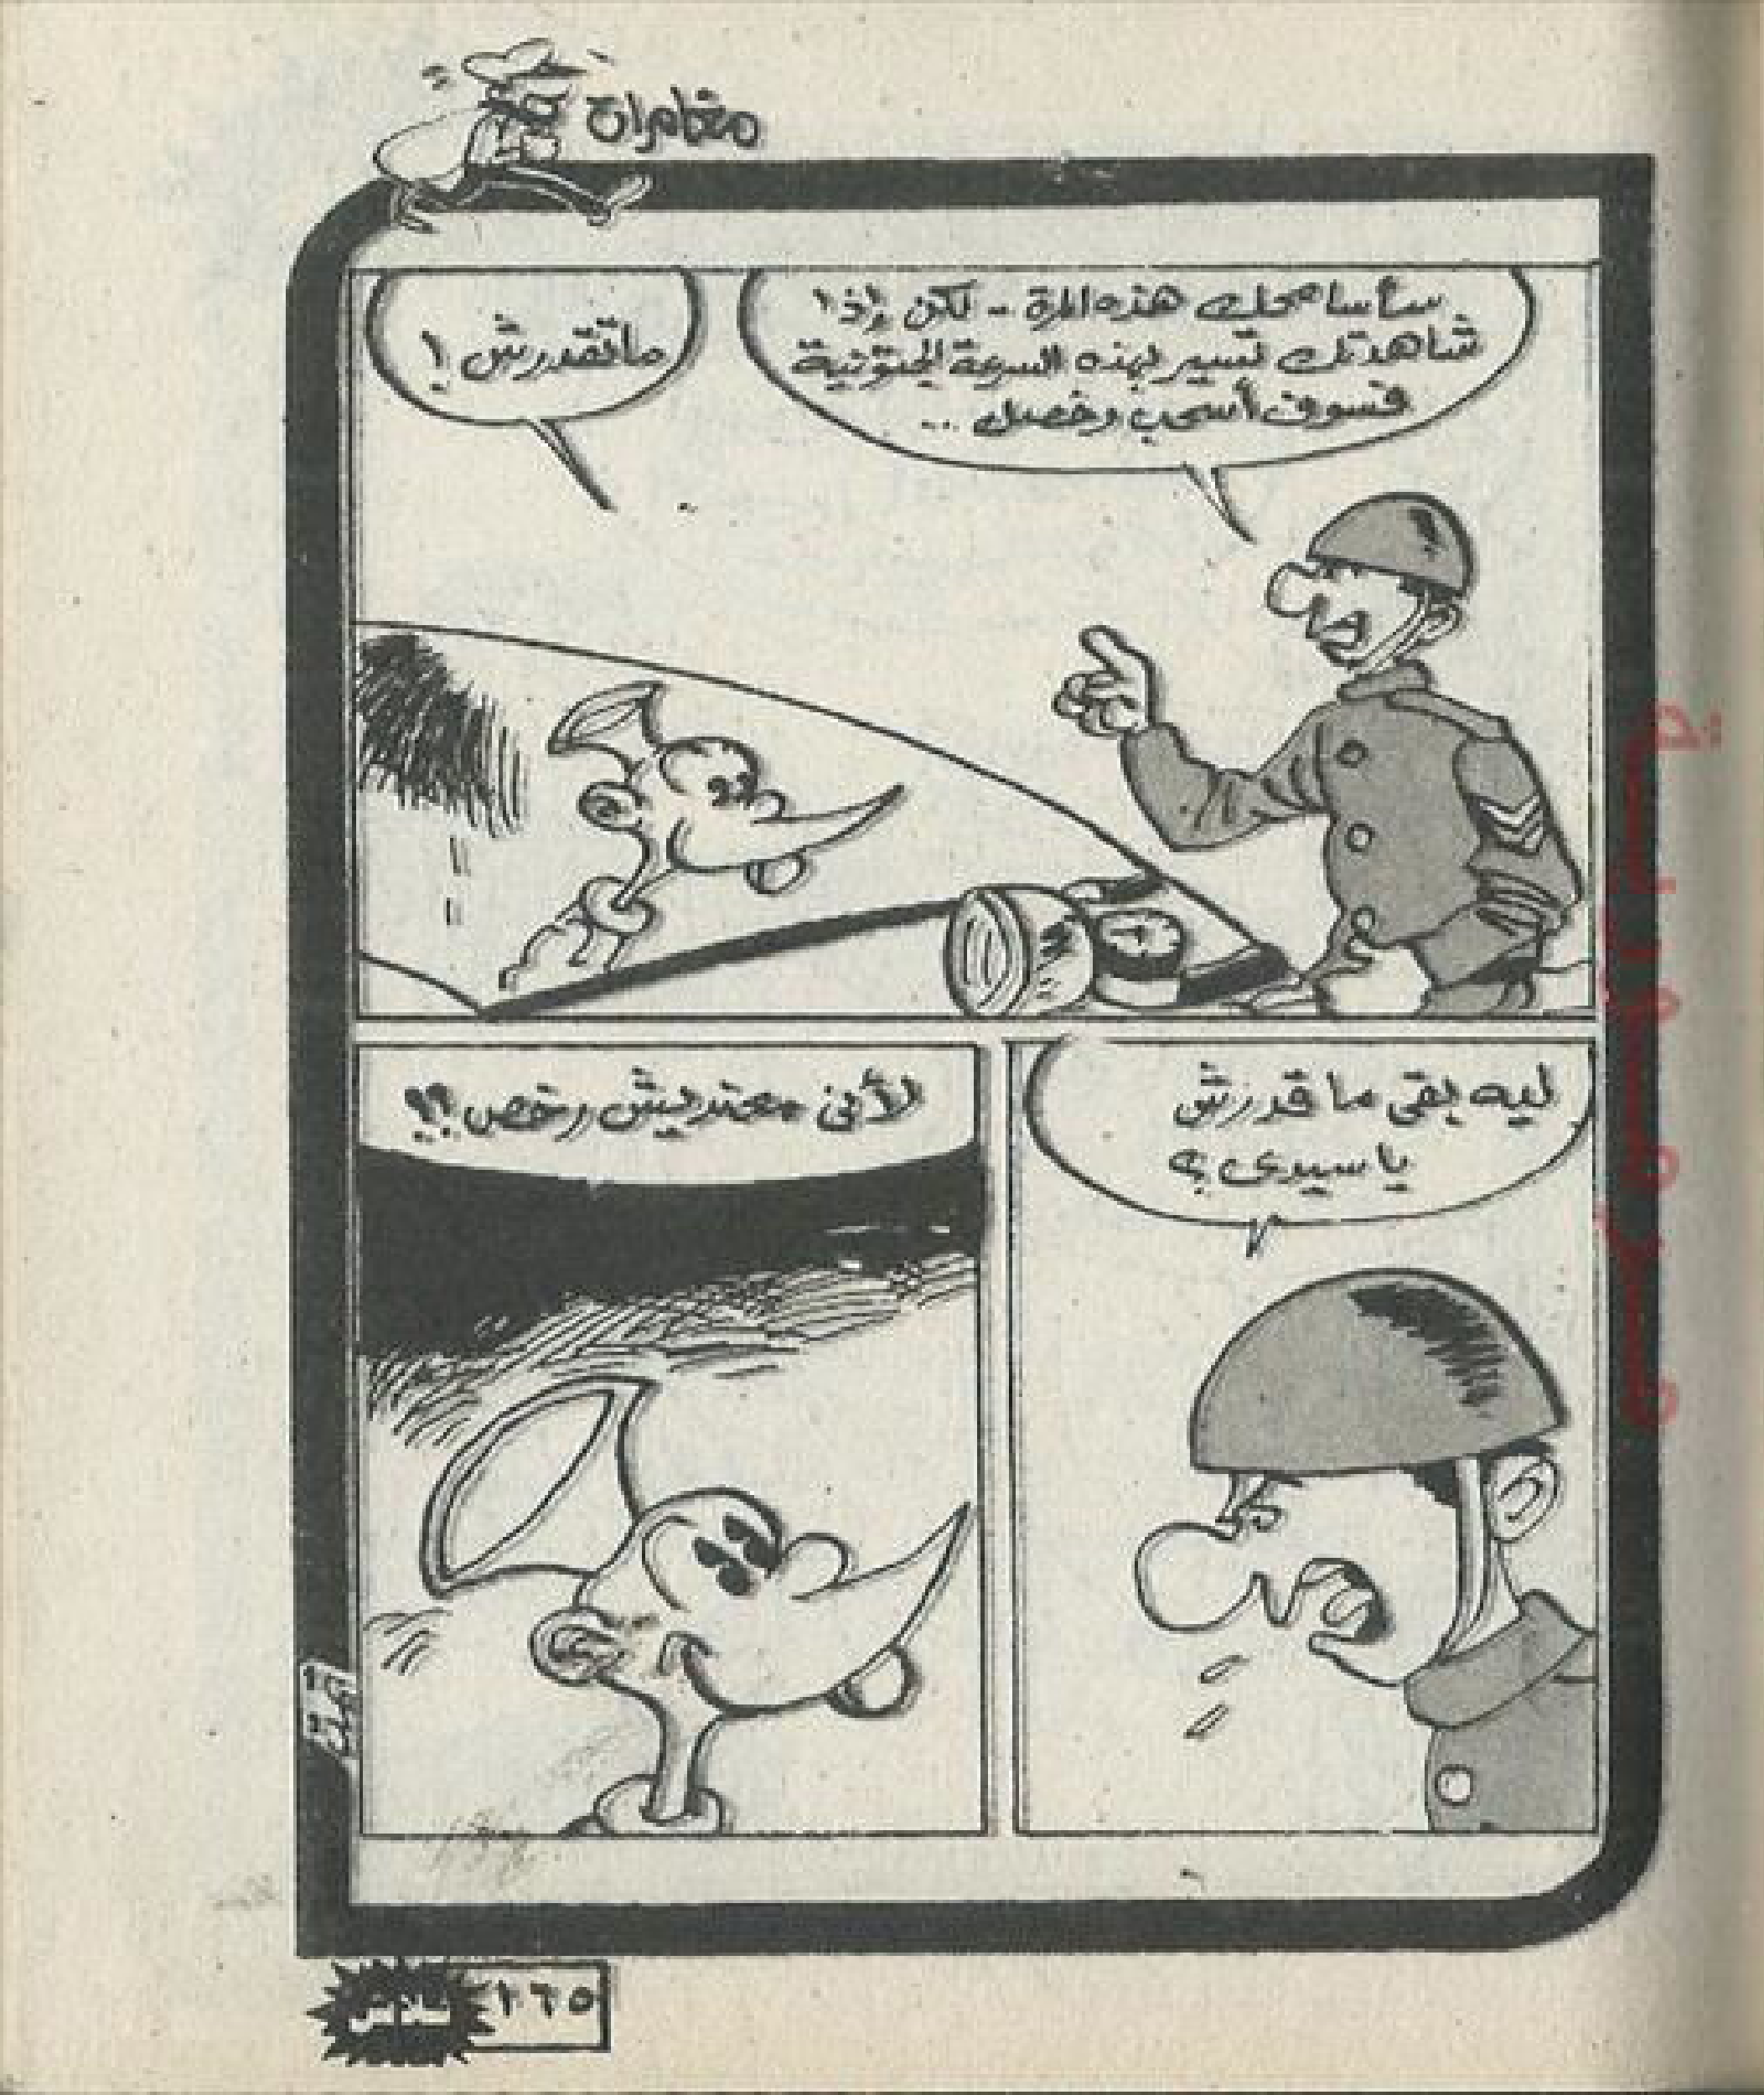 مغامرات
سأسامحك هذه المرة .. لكن إذا
شاهدتك تسير بهذه السرعة الجنونية
فسوف أسحب رخصك ...
ماتقدرش !
ليه بقى ما قدرش
يا سيدى ؟
لأنى معنديش رخص ؟!
فلاش
١٦٥